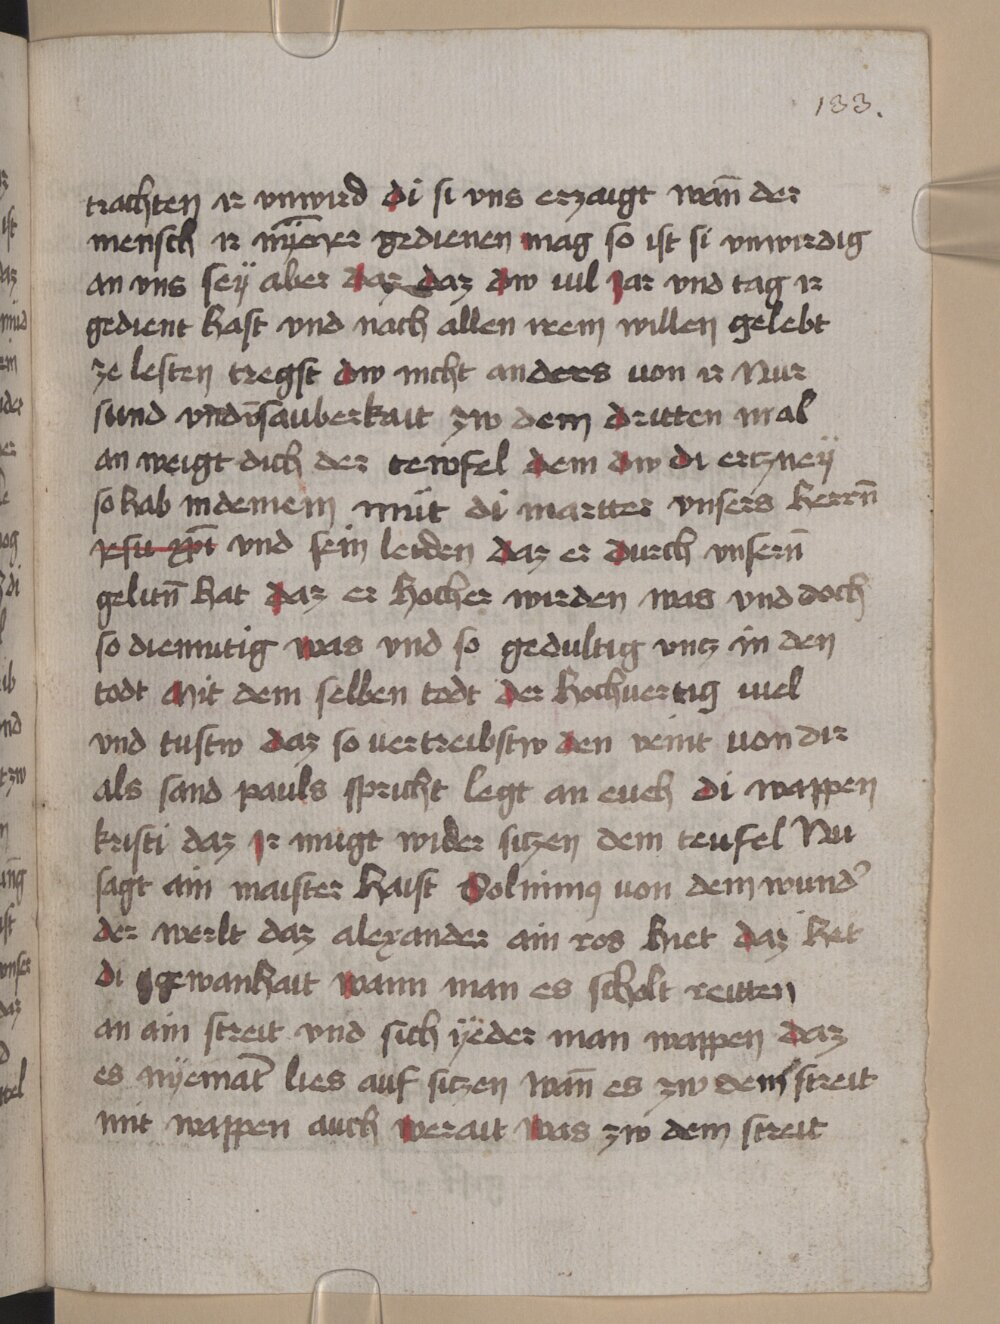 133.
trachten ir vnwird di si vns erzaigt wan̄ der
mensch ir nÿm̄er gedienen mag so ist si vnwirdig
an vns seÿ aber daz daz dw vil Jar vnd tag ir
gedient hast vnd nach allen irem willen gelebt
ze lesten tregst dw nicht anders von ir Nur
sund vnd vnsauberkait zw dem dritten mal
an weigt dich der tewfel dem dw di ertzneÿ
so hab in deinem müt di martter vnsers herrn̄
ihu xpi vnd sein leiden daz er durch vnsern̄
gelitn̄ hat daz er hocher wirden was vnd doch
so diemutig was vnd so gedultig vntz in den
todt Mit dem selben todt der hochvertig viel
vnd tustw daz so vertreibstw den veint von dir
als sand pauls spricht legt an euch di wappen
kristi daz Ir mugt wider sitzen dem teufel Nu
sagt ain maister haist Solninus von dem wund'
der werlt daz alexander ain ros hiet daz het
di gewanhait wann man es scholt reitten
an ain streit vnd sich ÿeder man wappen daz
es nÿemāt lies auf sitzen wan̄ es zw dem streit
mit wappen auch werait was zw dem streit